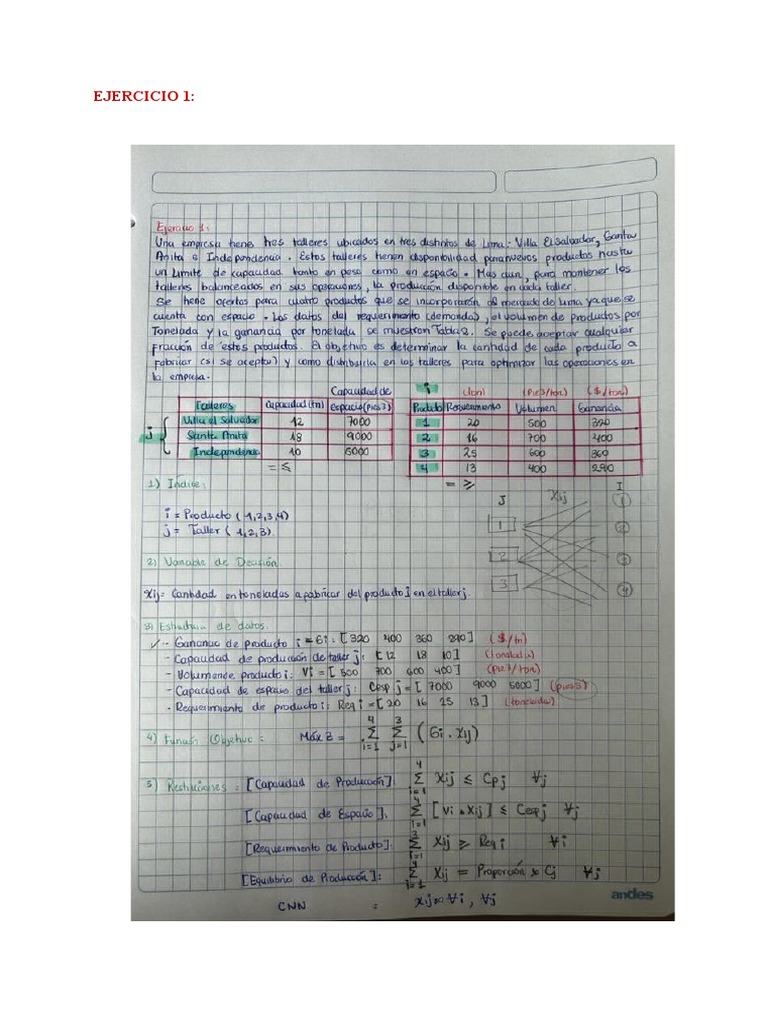 EJERCICIO 1:
Ejercicio 1:
Una empresa tiene tres talleres ubicados en tres distintos de Lima: Villa El Salvador, Santa
Anita e Independencia. Estos talleres tienen disponibilidad para nuevos productos hasta
un Limite de capacidad tanto en peso como en espacio. Mas aun, para mantener los
talleres balanceados en sus operaciones, la producción disponible en cada taller.
Se tiene ofertas para cuatro productos que se incorporarán al mercado de Lima ya que se
cuenta con espacio. Los datos del requerimiento (demanda), el volumen de productos por
Tonelada y la ganancia por tonelada se muestran Tabla 2. Se puede aceptar cualquier
fracción de estos productos. El objetivo es determinar la cantidad de cada producto a
fabricar (si se acepta) y como distribuirla en los talleres para optimizar las operaciones en
la empresa.
Talleres Capacidad (tn) Capacidad de espacio (pies3)
Villa el Salvador 12 7000
j { Santa Anita 18 9000
Independencia 10 5000
= ≤
i (ton) (Pie3/ton) ($/ton)
Producto Requerimiento Volumen Ganancia
1 20 500 320
2 16 700 400
3 25 600 360
4 13 400 290
= ≥
1) Índice:
i = Producto (1,2,3,4)
j = Taller (1,2,3)
J Xij I
1 1
2 2
3 3
4
2) Variable de Decisión
Xij = Cantidad en toneladas a fabricar del producto i en el taller j.
3) Estructura de datos
✓ - Ganancia de producto i = Gi: [320 400 360 290] ($/tn)
- Capacidad de producción de taller j: [12 18 10] (toneladas)
- Volumen de producto i: Vi = [500 700 600 400] (pie3/ton)
- Capacidad de espacio del taller j: Cesp j = [7000 9000 5000] (pies3)
- Requerimiento de producto i: Req i = [20 16 25 13] (toneladas)
4) Función Objetivo: Máx Z = 4 Σ i=1 3 Σ j=1 (Gi . Xij)
5) Restricciones: [Capacidad de Producción]: 4 Σ i=1 Xij ≤ Cpj ∀j
[Capacidad de Espacio]: 4 Σ i=1 [Vi * Xij] ≤ Cesp j ∀j
[Requerimiento de Producto]: 3 Σ j=1 Xij ≥ Req i ∀i
[Equilibrio de Producción]: 4 Σ i=1 Xij = Proporción * Cj ∀j
CNN : Xij ≥ 0 ∀i, ∀j
andes